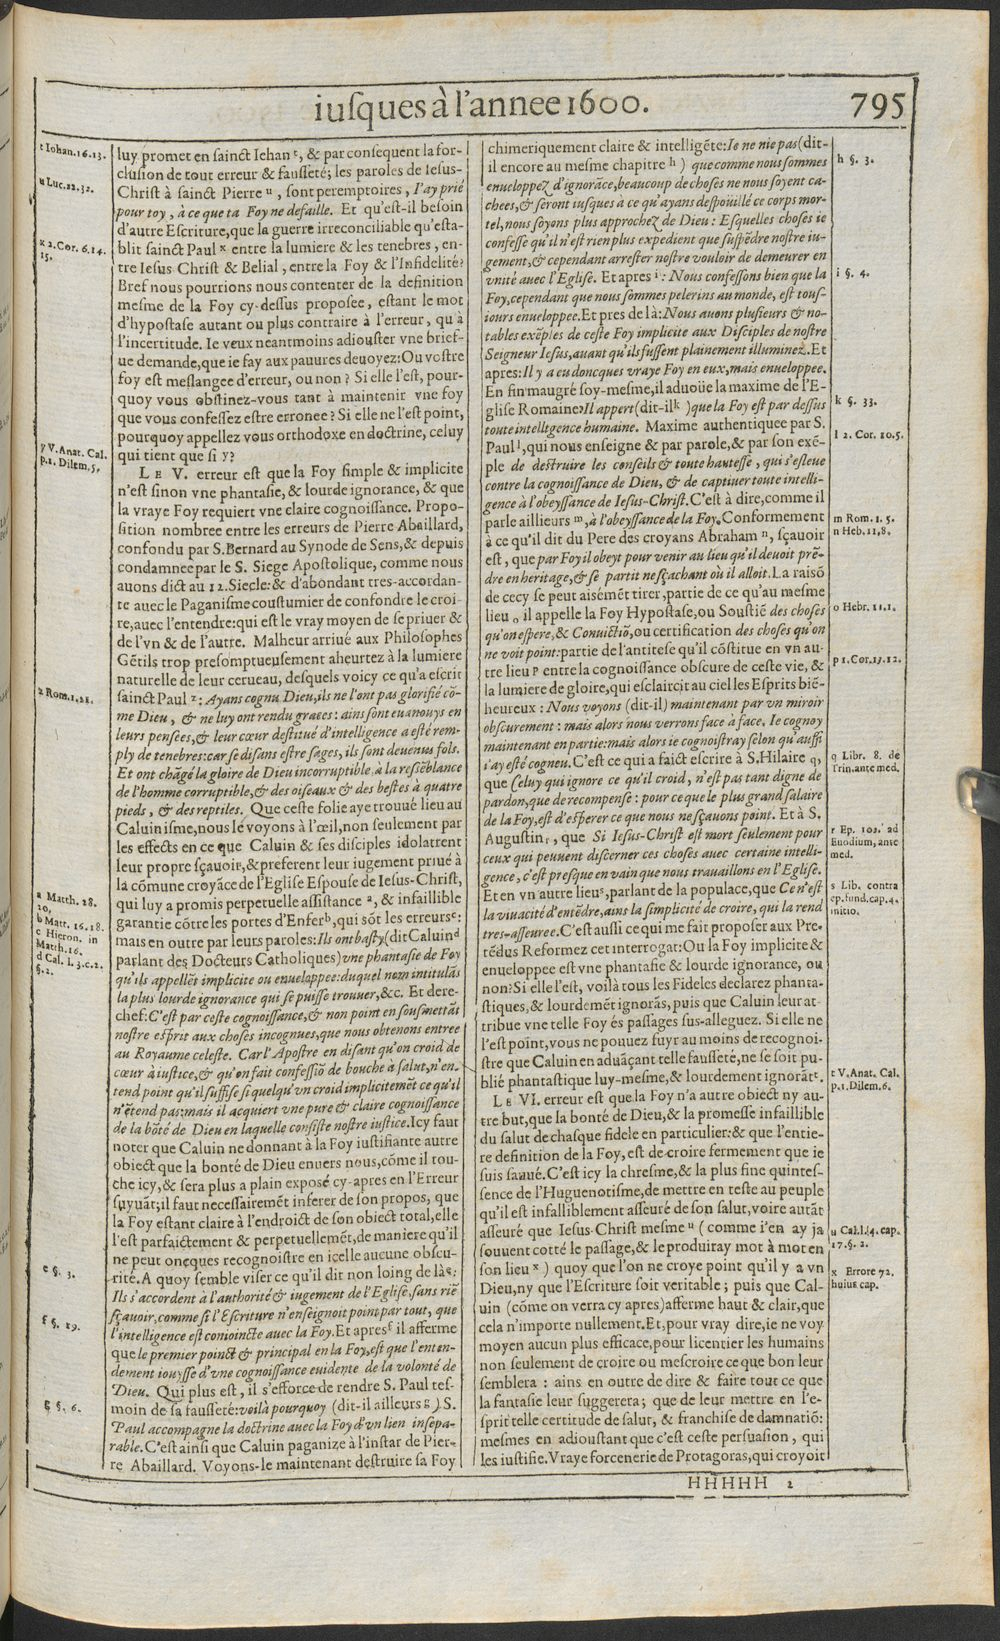 iusques à l'annee 1600.
795
t Iohan. 16. 13.
u Luc. 22. 32.
x 2. Cor. 6. 14.
15.
y V. Anat. Cal.
p. 1. Dilem. 5,
z Rom. 1. 21.
a Matth. 28.
20,
b Matt. 16. 18.
c Hieron. in
Matth. 16.
d Cal. l. 3. c. 2.
§. 2.
e §. 3.
f §. 29.
g §. 6.
luy promet en sainct Iehan t, & par consequent la for-
clusion de tout erreur & fausseté; les paroles de Iesus-
Christ à sainct Pierre u, sont peremptoires, I'ay prié
pour toy, à ce que ta Foy ne defaille. Et qu'est-il besoin
d'autre Escriture, que la guerre irreconciliable qu'esta-
blit sainct Paul x entre la lumiere & les tenebres, en-
tre Iesus Christ & Belial, entre la Foy & l'Infidelité?
Bref nous pourrions nous contenter de la definition
mesme de la Foy cy-dessus proposee, estant le mot
d'hypostase autant ou plus contraire à l'erreur, qu'à
l'incertitude. Ie veux neantmoins adiouster vne brief-
ue demande, que ie fay aux pauures deuoyez: Ou vostre
foy est meslangee d'erreur, ou non? Si elle l'est, pour-
quoy vous obstinez-vous tant à maintenir vne foy
que vous confessez estre erronee? Si elle ne l'est point,
pourquoy appellez vous orthodoxe en doctrine, celuy
qui tient que si y?
LE V. erreur est que la Foy simple & implicite
n'est sinon vne phantasie, & lourde ignorance, & que
la vraye Foy requiert vne claire cognoissance. Propo-
sition nombree entre les erreurs de Pierre Abaillard,
confondu par S. Bernard au Synode de Sens, & depuis
condamnee par le S. Siege Apostolique, comme nous
auons dict au 12. Siecle: & d'abondant tres-accordan-
te auec le Paganisme coustumier de confondre le croi-
re, auec l'entendre: qui est le vray moyen de se priuer &
de l'vn & de l'autre. Malheur arriué aux Philosophes
Gẽtils trop presomptueusement aheurtez à la lumiere
naturelle de leur cerueau, desquels voicy ce qu'a escrit
sainct Paul z: Ayans cognu Dieu, ils ne l'ont pas glorifié cõ-
me Dieu, & ne luy ont rendu graces: ains sont euanouys en
leurs pensees, & leur cœur destitué d'intelligence a esté rem-
ply de tenebres: car se disans estre sages, ils sont deuenus fols.
Et ont chãgé la gloire de Dieu incorruptible à la ressẽblance
de l'homme corruptible, & des oiseaux & des bestes à quatre
pieds, & des reptiles. Que ceste folie aye trouué lieu au
Caluinisme, nous le voyons à l'œil, non seulement par
les effects en ce que Caluin & ses disciples idolatrent
leur propre sçauoir, & preferent leur iugement priué à
la cõmune croyãce de l'Eglise Espouse de Iesus-Christ,
qui luy a promis perpetuelle assistance a, & infaillible
garantie cõtre les portes d'Enfer b, qui sõt les erreurs c:
mais en outre par leurs paroles: Ils ont basty (dit Caluin d
parlant des Docteurs Catholiques) vne phantasie de Foy
qu'ils appellẽt implicite ou enueloppee: duquel nom intitulãs
la plus lourde ignorance qui se puisse trouuer, &c. Et dere-
chef: C'est par ceste cognoissance, & non point en sousmettãt
nostre esprit aux choses incognues, que nous obtenons entree
au Royaume celeste. Car l'Apostre en disant qu'on croid de
cœur à iustice, & qu'on fait confessiõ de bouche a salut, n'en-
tend point qu'il suffise si quelqu'vn croid implicitemẽt ce qu'il
n'ẽtend pas: mais il acquiert vne pure & claire cognoissance
de la bõté de Dieu en laquelle consiste nostre iustice. Icy faut
noter que Caluin ne donnant à la Foy iustifiante autre
obiect que la bonté de Dieu enuers nous, cõme il tou-
che icy, & sera plus a plain exposé cy-apres en l'Erreur
suyuãt; il faut necessairemẽt inferer de son propos, que
la Foy estant claire à l'endroict de son obiect total, elle
l'est parfaictement & perpetuellemẽt, de maniere qu'il
ne peut oncques recognoistre en icelle aucune obscu-
rité. A quoy semble viser ce qu'il dit non loing de là e:
Ils s'accordent à l'authorité & iugement de l'Eglise, sans riẽ
sçauoir, comme si l'Escriture n'enseignoit point par tout, que
l'intelligence est conioincte auec la Foy. Et apres f il afferme
que le premier poinct & principal en la Foy, est que l'enten-
dement iouysse d'vne cognoissance euidente de la volonté de
Dieu. Qui plus est, il s'efforce de rendre S. Paul tes-
moin de sa fausseté: voilà pourquoy (dit-il ailleurs g) S.
Paul accompagne la doctrine auec la Foy d'vn lien insepa-
rable. C'est ainsi que Caluin paganize à l'instar de Pier-
re Abaillard. Voyons-le maintenant destruire sa Foy
chimeriquement claire & intelligẽte: Ie ne nie pas (dit-
il encore au mesme chapitre h) que comme nous sommes
enueloppez d'ignorãce, beaucoup de choses ne nous soyent ca-
chees, & seront iusques à ce qu'ayans despouillé ce corps mor-
tel, nous soyons plus approchez de Dieu: Esquelles choses ie
confesse qu'il n'est rien plus expedient que suspẽdre nostre iu-
gement, & cependant arrester nostre vouloir de demeurer en
vnité auec l'Eglise. Et apres i: Nous confessons bien que la
Foy, cependant que nous sommes pelerins au monde, est tous-
iours enueloppee. Et pres de là: Nous auons plusieurs & no-
tables exẽples de ceste Foy implicite aux Disciples de nostre
Seigneur Iesus, auant qu'ils fussent plainement illuminez. Et
apres: Il y a eu doncques vraye Foy en eux, mais enueloppee.
En fin maugré soy-mesme, il aduoüe la maxime de l'E-
glise Romaine: Il appert (dit-il k) que la Foy est par dessus
toute intelligence humaine. Maxime authentiquee par S.
Paul l, qui nous enseigne & par parole, & par son exẽ-
ple de destruire les conseils & toute hautesse, qui s'esleue
contre la cognoissance de Dieu, & de captiuer toute intelli-
gence à l'obeyssance de Iesus-Christ. C'est à dire, comme il
parle aillieurs m, à l'obeyssance de la Foy. Conformement
à ce qu'il dit du Pere des croyans Abraham n, sçauoir
est, que par Foy il obeyt pour venir au lieu qu'il deuoit prẽ-
dre en heritage, & se partit ne sçachant où il alloit. La raisõ
de cecy se peut aisémẽt tirer, partie de ce qu'au mesme
lieu o il appelle la Foy Hypostase, ou Soustiẽ des choses
qu'on espere, & Conuictiõ, ou certification des choses qu'on
ne voit point: partie de l'antitese qu'il cõstitue en vn au-
tre lieu p entre la cognoissance obscure de ceste vie, &
la lumiere de gloire, qui esclaircit au ciel les Esprits biẽ-
heureux: Nous voyons (dit-il) maintenant par vn miroir
obscurement: mais alors nous verrons face à face. Ie cognoy
maintenant en partie: mais alors ie cognoistray selon qu'aussi
i'ay esté cogneu. C'est ce qui a faict escrire à S. Hilaire q,
que Celuy qui ignore ce qu'il croid, n'est pas tant digne de
pardon, que de recompense: pource que le plus grand salaire
de la Foy, est d'esperer ce que nous ne sçauons point. Et à S.
Augustin r, que Si Iesus-Christ est mort seulement pour
ceux qui peuuent discerner ces choses auec certaine intelli-
gence, c'est presque en vain que nous trauaillons en l'Eglise.
Et en vn autre lieu s, parlant de la populace, que Ce n'est
la viuacité d'entẽdre, ains la simplicité de croire, qui la rend
tres-asseuree. C'est aussi ce qui me fait proposer aux Pre-
tẽdus Reformez cet interrogat: Ou la Foy implicite &
enueloppee est vne phantasie & lourde ignorance, ou
non? Si elle l'est, voilà tous les Fideles declarez phanta-
stiques, & lourdemẽt ignorãs, puis que Caluin leur at-
tribue vne telle Foy és passages sus-alleguez. Si elle ne
l'est point, vous ne pouuez fuyr au moins de recognoi-
stre que Caluin en aduãçant telle fausseté, ne se soit pu-
blié phantastique luy-mesme, & lourdement ignorãt t.
LE VI. erreur est que la Foy n'a autre obiect ny au-
tre but, que la bonté de Dieu, & la promesse infaillible
du salut de chasque fidele en particulier: & que l'entie-
re definition de la Foy, est de croire fermement que ie
suis sauué. C'est icy la chresme, & la plus fine quintes-
sence de l'Huguenotisme, de mettre en teste au peuple
qu'il est infailliblement asseuré de son salut, voire autãt
asseuré que Iesus-Christ mesme u (comme i'en ay ja
souuent cotté le passage, & le produiray mot à mot en
son lieu x) quoy que l'on ne croye point qu'il y a vn
Dieu, ny que l'Escriture soit veritable; puis que Cal-
uin (cõme on verra cy apres) afferme haut & clair, que
cela n'importe nullement. Et, pour vray dire, ie ne voy
moyen aucun plus efficace, pour licentier les humains
non seulement de croire ou mescroire ce que bon leur
semblera: ains en outre de dire & faire tout ce que
la fantasie leur suggerera; que de leur mettre en l'e-
sprit telle certitude de salut, & franchise de damnatiõ:
mesmes en adioustant que c'est ceste persuasion, qui
les iustifie. Vraye forcenerie de Protagoras, qui croyoit
h §. 3.
i §. 4.
k §. 33.
l 2. Cor. 10. 5.
m Rom. 1. 5.
n Heb. 11, 8.
o Hebr. 11. 1.
p 1. Cor. 13. 12.
q Libr. 8. de
Trin. ante med.
r Ep. 102. ad
Euodium, ante
med.
s Lib. contra
ep. fund. cap. 4.
initio.
t V. Anat. Cal.
p. 1. Dilem. 6.
u Cal. l. 4. cap.
17. §. 2.
x Errore 72.
huius cap.
HHHHH 2